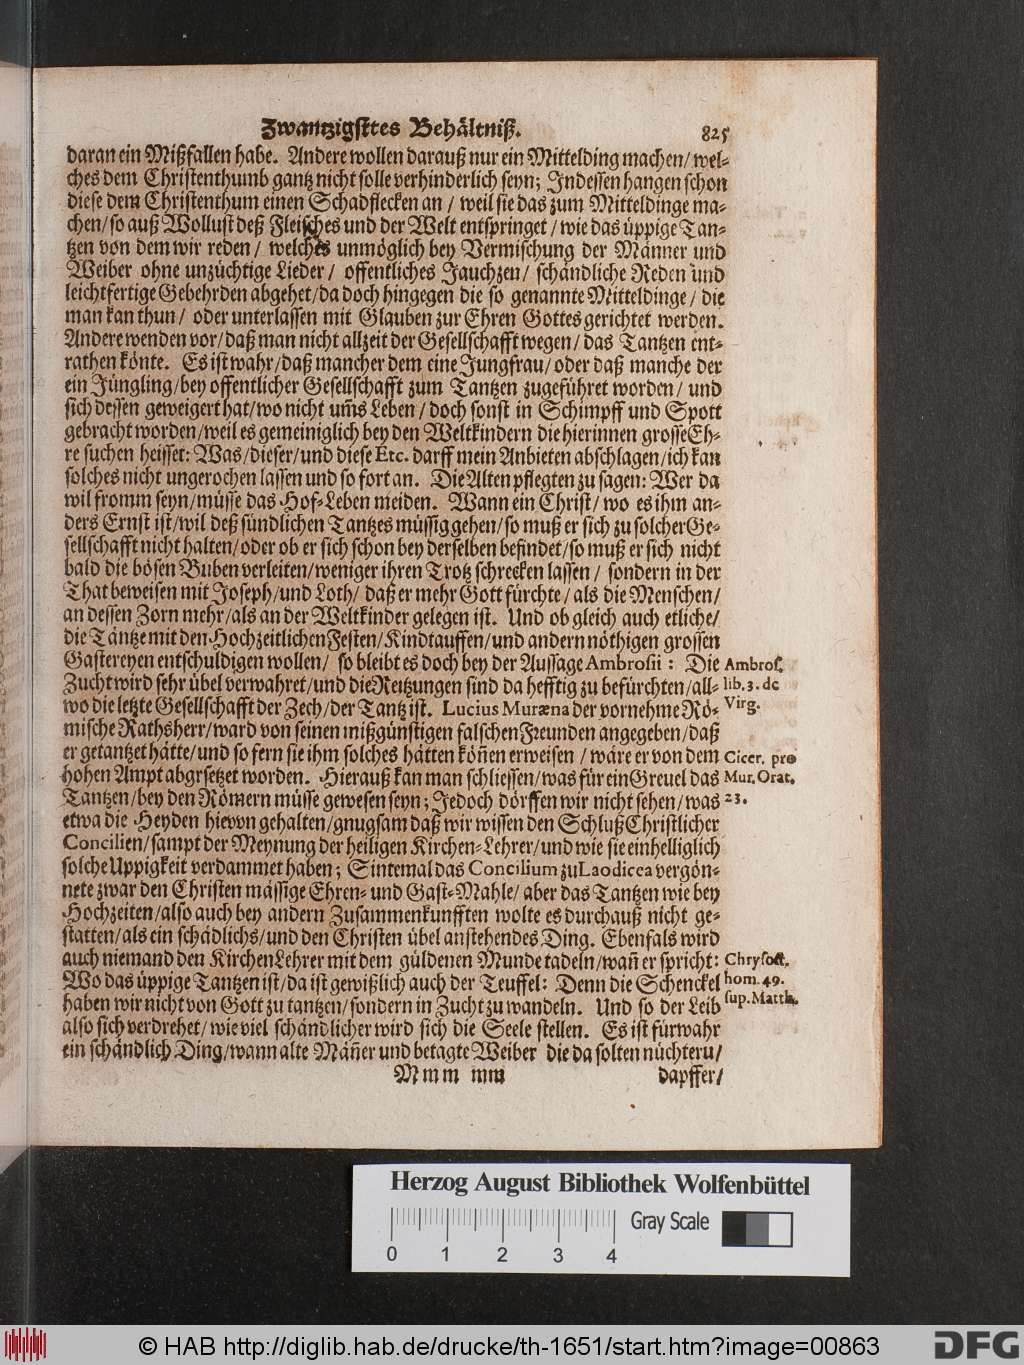 Zwantzigsttes Behältniß. 825
daran ein Mißfallen habe. Andere wollen darauß nur ein Mittelding machen/ wel-
ches dem Christenthumb gantz nicht solle verhinderlich seyn; Indessen hangen schon
diese dem Christenthum einen Schadflecken an / weil sie das zum Mitteldinge ma-
chen/ so auß Wollust deß Fleisches und der Welt entspringet / wie das üppige Tan-
tzen von dem wir reden / welches unmöglich bey Vermischung der Männer und
Weiber ohne unzüchtige Lieder / offentliches Jauchzen/ schändliche Reden und
leichtfertige Gebehrden abgehet/ da doch hingegen die so genannte Mitteldinge / die
man kan thun / oder unterlassen mit Glauben zur Ehren Gottes gerichtet werden.
Andere wenden vor/ daß man nicht allzeit der Gesellschafft wegen / das Tantzen ent-
rathen könte. Es ist wahr/ daß mancher dem eine Jungfrau/ oder daß manche der
ein Jüngling/ bey offentlicher Gesellschafft zum Tantzen zugeführet worden / und
sich dessen geweigert hat/ wo nicht um̃s Leben / doch sonst in Schimpff und Spott
gebracht worden/ weil es gemeiniglich bey den Weltkindern die hierinnen grosse Eh-
re suchen heisset: Was/ dieser/ und diese Etc. darff mein Anbieten abschlagen/ ich kan
solches nicht ungerochen lassen und so fort an. Die Alten pflegten zu sagen: Wer da
wil fromm seyn/ müsse das Hof-Leben meiden. Wann ein Christ/ wo es ihm an-
ders Ernst ist/ wil deß sündlichen Tantzes müssig gehen/ so muß er sich zu solcher Ge-
sellschafft nicht halten/ oder ob er sich schon bey derselben befindet/ so muß er sich nicht
bald die bösen Buben verleiten/ weniger ihren Trotz schrecken lassen / sondern in der
That beweisen mit Joseph/ und Loth/ daß er mehr Gott fürchte/ als die Menschen/
an dessen Zorn mehr/ als an der Weltkinder gelegen ist. Und ob gleich auch etliche/
die Täntze mit den Hochzeitlichen Festen/ Kindtauffen/ und andern nöthigen grossen
Gastereyen entschuldigen wollen/ so bleibt es doch bey der Aussage Ambrosii: Die
Zucht wird sehr übel verwahret/ und die Reitzungen sind da hefftig zu befürchten/ all-
wo die letzte Gesellschafft der Zech/ der Tantz ist. Lucius Muræna der vornehme Rö-
mische Rathsherr/ ward von seinen mißgünstigen falschen Freunden angegeben/ daß
er getantzet hätte/ und so fern sie ihm solches hätten köñen erweisen / wäre er von dem
hohen Ampt abgrsetzet worden. Hierauß kan man schliessen/ was für ein Greuel das
Tantzen/ bey den Römern müsse gewesen seyn; Jedoch dörffen wir nicht sehen/ was
etwa die Heyden hievvn gehalten/ gnugsam daß wir wissen den Schluß Christlicher
Concilien/ sampt der Meynung der heiligen Kirchen-Lehrer/ und wie sie einhelliglich
solche Uppigkeit verdammet haben; Sintemal das Concilium zu Laodicea vergön-
nete zwar den Christen mässige Ehren- und Gast-Mahle/ aber das Tantzen wie bey
Hochzeiten/ also auch bey andern Zusammenkunfften wolte es durchauß nicht ge-
statten/ als ein schädlichs/ und den Christen übel anstehendes Ding. Ebenfals wird
auch niemand den Kirchen Lehrer mit dem güldenen Munde tadeln/ wañ er spricht:
Wo das üppige Tantzen ist/ da ist gewißlich auch der Teuffel: Denn die Schenckel
haben wir nicht von Gott zu tantzen/ sondern in Zucht zu wandeln. Und so der Leib
also sich verdrehet/ wie viel schändlicher wird sich die Seele stellen. Es ist fürwahr
ein schändlich Ding/ wann alte Mäñer und betagte Weiber die da solten nüchteru/
Mmm mm dapffer/
Ambros.
lib. 3. de
Virg.
Cicer. pro
Mur. Orat.
23.
Chrysost.
hom. 49.
sup. Matth.
Herzog August Bibliothek Wolfenbüttel
Gray Scale
0 1 2 3 4
© HAB http://diglib.hab.de/drucke/th-1651/start.htm?image=00863
DFG